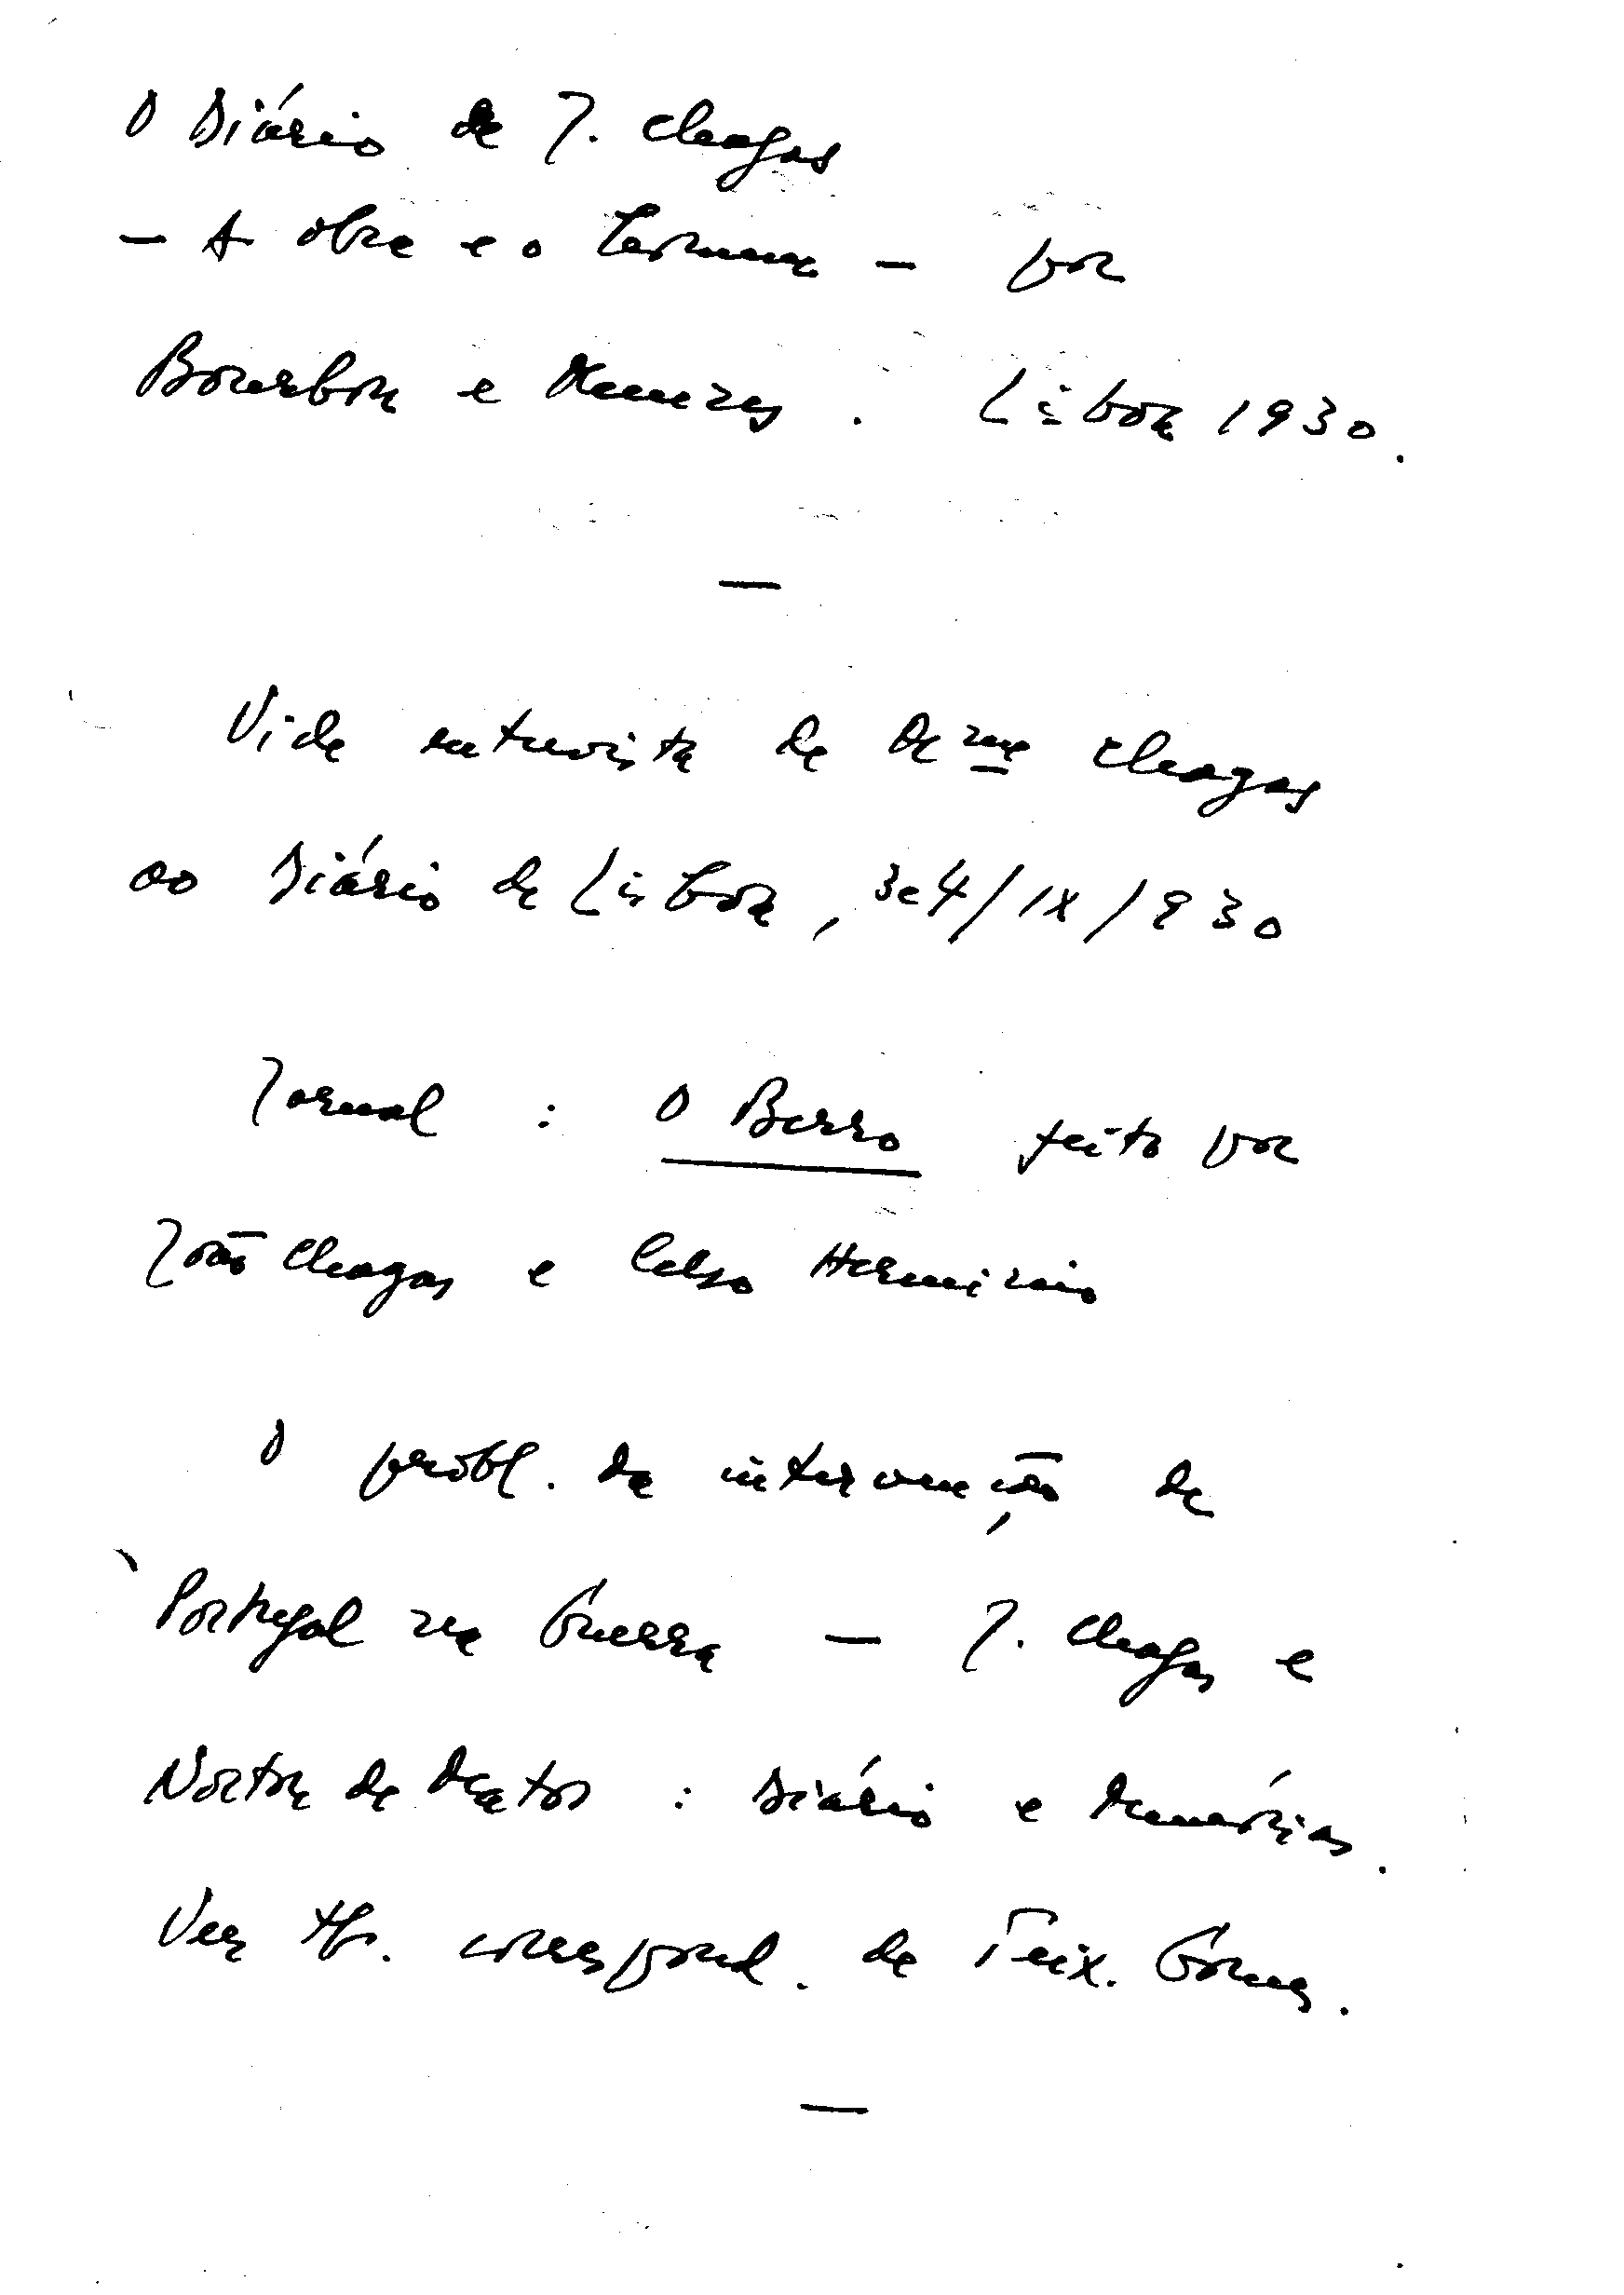 O Diário de J. Chagas
– A obra e o homem – por
Bourbon e Menezes. Lisboa 1930.
—
Vide entrevista de Mme Chagas
ao Diário de Lisboa, 3 e 4/IX/930
Jornal : O Berro feito por
João Chagas e Celso Herminio
O probl. da intervenção de
Portugal na Guerra – J. Chagas e
Norton de Matos : Diário e Memórias.
Ver tb. correspond. de Teix. Gomes.
—